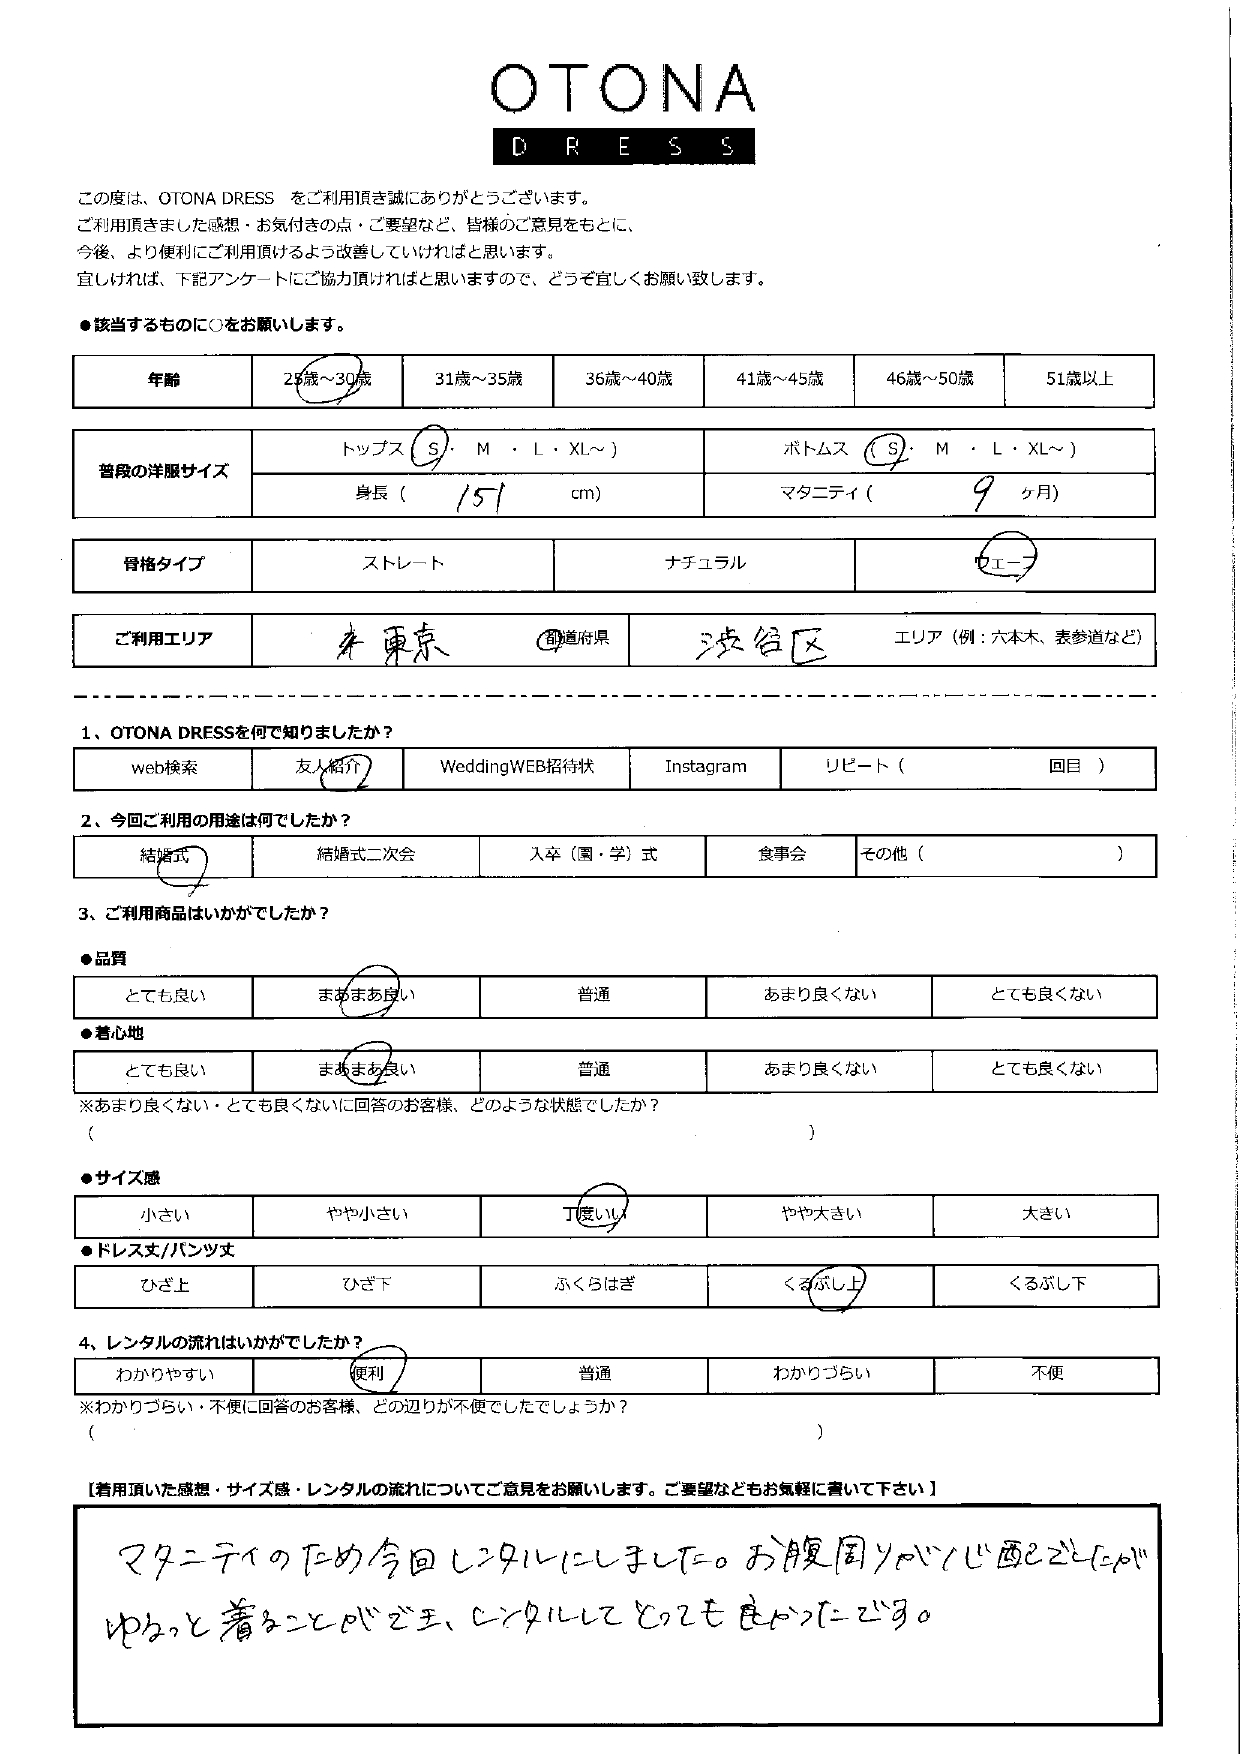 OTONA
DRESS
この度は、OTONA DRESS をご利用頂き誠にありがとうございます。
ご利用頂きました感想・お気付きの点・ご要望など、皆様のご意見をもとに、
今後、より便利にご利用頂けるよう改善していければと思います。
宜しければ、下記アンケートにご協力頂ければと思いますので、どうぞ宜しくお願い致します。
●該当するものに○をお願いします。
年齢 25歳～30歳 31歳～35歳 36歳～40歳 41歳～45歳 46歳～50歳 51歳以上
普段の洋服サイズ トップス ( S ・ M ・ L ・ XL～ ) ボトムス ( S ・ M ・ L ・ XL～ )
身長 ( 151 cm) マタニティ ( 9 ヶ月)
骨格タイプ ストレート ナチュラル ウェーブ
ご利用エリア 東京 都道府県 渋谷区 エリア（例：六本木、表参道など）
1、OTONA DRESSを何で知りましたか？
web検索 友人紹介 WeddingWEB招待状 Instagram リピート（ 回目 ）
2、今回ご利用の用途は何でしたか？
結婚式 結婚式二次会 入卒（園・学）式 食事会 その他（ ）
3、ご利用商品はいかがでしたか？
●品質
とても良い まあまあ良い 普通 あまり良くない とても良くない
●着心地
とても良い まあまあ良い 普通 あまり良くない とても良くない
※あまり良くない・とても良くないに回答のお客様、どのような状態でしたか？
（ ）
●サイズ感
小さい やや小さい 丁度いい やや大きい 大きい
●ドレス丈/パンツ丈
ひざ上 ひざ下 ふくらはぎ くるぶし上 くるぶし下
4、レンタルの流れはいかがでしたか？
わかりやすい 便利 普通 わかりづらい 不便
※わかりづらい・不便に回答のお客様、どの辺りが不便でしたでしょうか？
（ ）
【着用頂いた感想・サイズ感・レンタルの流れについてご意見をお願いします。ご要望などもお気軽に書いて下さい】
マタニティのため今回レンタルにしました。お腹周りが心配でしたが
ゆるっと着ることができ、レンタルしてとっても良かったです。